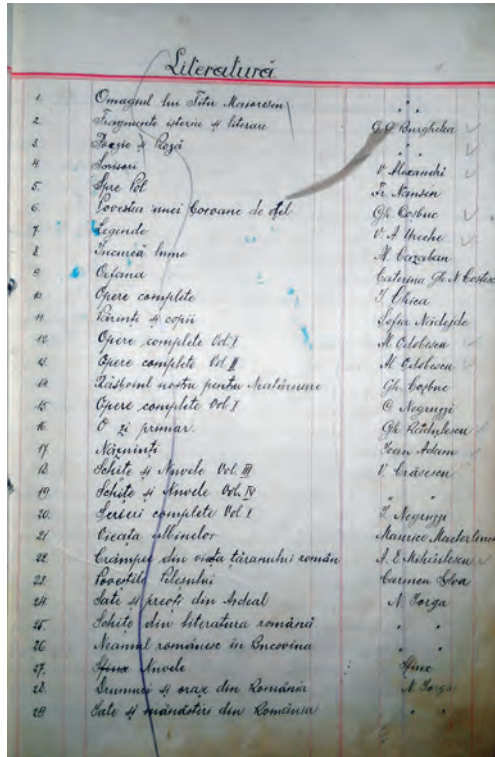 Literatură
1. Omagiul lui Titu Maiorescu " "
2. Fragmente istorice și literare G. O. Burghelea
3. Poezie și Proză " "
4. Scrisori V. Alexandri
5. Spre Pol Fr. Nansen
6. Povestea unei Coroane de oțel Gh. Coșbuc
7. Legende V. A. Ureche
8. Încurcă lume A. Cazaban
9. Orfana Caterina Gh. N. Costescu
10. Opere complete I. Ghica
11. Părinți și copii Sofia Nădejde
12. Opere complete Vol. I Al. Odobescu
13. Opere complete Vol. II Al. Odobescu
14. Răsboiul nostru pentru Neatârnare Gh. Coșbuc
15. Opere complete Vol. I C. Negruzzi
16. O zi primar. Gh. Rădulescu
17. Năzuinți Ioan Adam
18. Schițe și Nuvele Vol. III V. Crăsescu
19. Schițe și Nuvele Vol. IV " "
20. Scrieri complete Vol. I I. Negruzzi
21. Vieata albinelor Maurice Maeterlinck
22. Crâmpee din viața țăranului român A. E. Mihăilescu
23. Poveștile Peleșului Carmen Sylva
24. Sate și preoți din Ardeal N. Iorga
25. Schițe din literatura română " "
26. Neamul românesc în Bucovina
27. Sfinx Nuvele Sfinx
28. Drumuri și orașe din România N. Iorga
29. Sate și mănăstiri din România " "